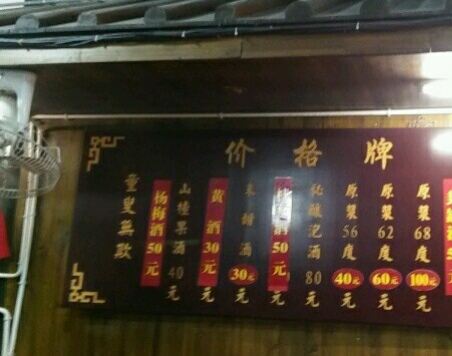 价格牌
童叟无欺
杨梅酒50元
山楂果酒40元
黄酒30元
米甜酒30元
酒50元
秘酿泡酒80元
原浆56度40元
原浆62度60元
原浆68度100元